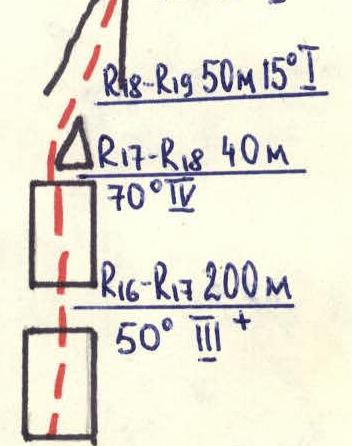 R18-R19 50м 15° I
R17-R18 40м
70° IV
R16-R17 200м
50° III+